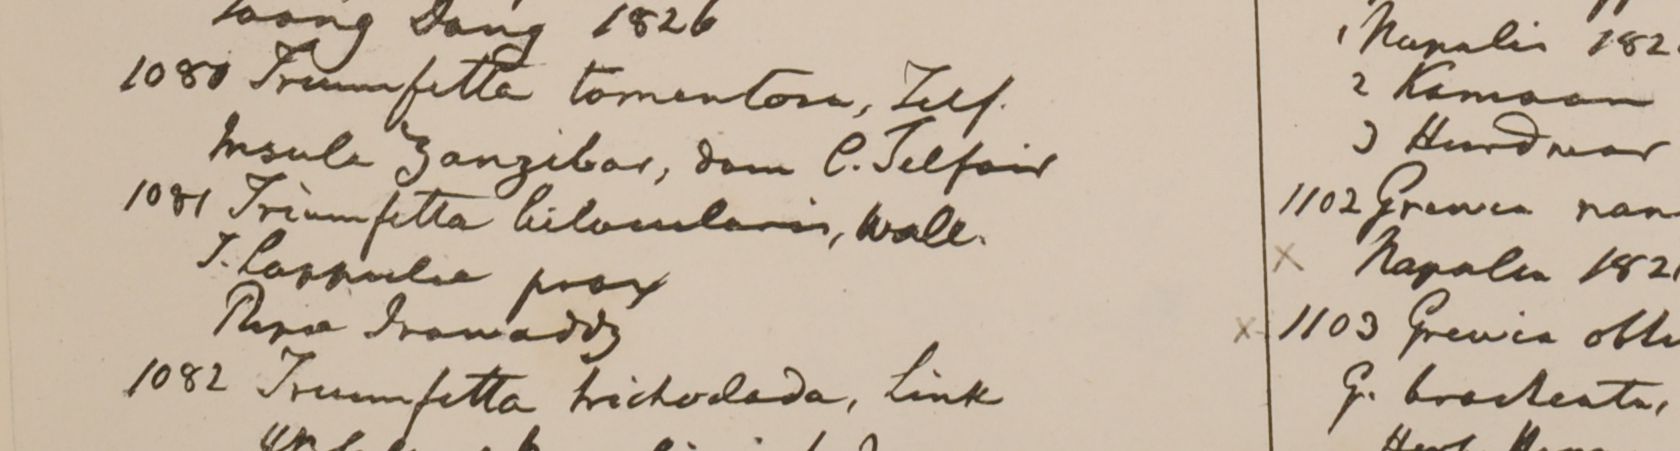 Toong Dong 1826
1080 Triumfetta tomentosa, Telf.
Insula Zanzibar, dom C. Telfair
1081 Triumfetta bilocularis, Wall.
T. Lappulae prox
Ripa Irawaddy
1082 Triumfetta trichoclada, Link
1 Napalia 182
2 Kamaon
3 Hurdwar
1102 Grewia nan
X Napalia 1821
X 1103 Grewia obl
G. bracteata,